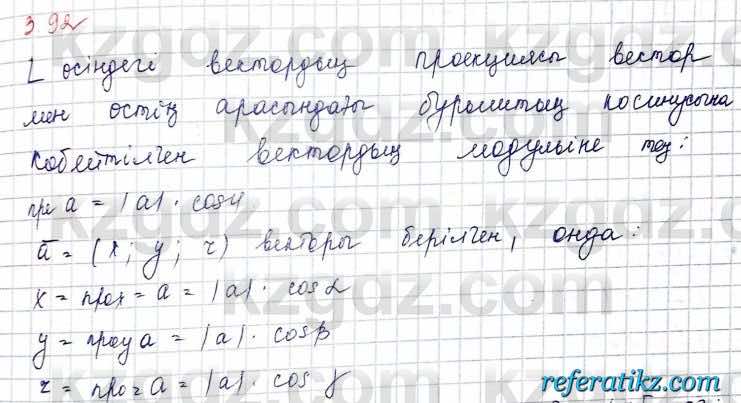 392
L осіндегі вектордың проекциясы вектор
мен остің арасындағы бұрыштың косинусына
көбейтілген вектордың модуліне тең:
пре a = |a| · cosφ
ā = (x; y; z) векторы берілген, онда:
x = прox = a = |a| · cosα
y = прoy a = |a| · cosβ
z = прoz a = |a| · cos γ
kzgdz.com
referatikz.com